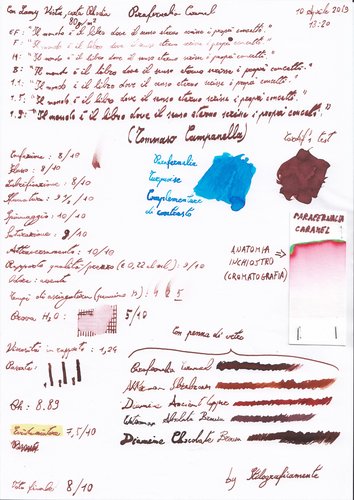 Con Lamy Vista, carta
80g/m²
Parafernalia Caramel
10 Aprile 2013
13:20
EF: "Il mondo è il libro dove il senno eterno scrisse i propri concetti."
F: "Il mondo è il libro dove il senno eterno scrisse i propri concetti."
M: "Il mondo è il libro dove il senno eterno scrisse i propri concetti."
B: "Il mondo è il libro dove il senno eterno scrisse i propri concetti."
1.1: "Il mondo è il libro dove il senno eterno scrisse i propri concetti."
1.5: "Il mondo è il libro dove il senno eterno scrisse i propri concetti."
1.9: "Il mondo è il libro dove il senno eterno scrisse i propri concetti."
(Tommaso Campanella)
Confezione: 8/10
Flusso: 8/10
Lubrificazione: 8/10
Sfumatura: /10
Spiumaggio: 10/10
Saturazione: 9/10
Attraversamento: 10/10
Rapporto qualità/prezzo (€ 0,22 al ml): 9/10
Odore: assente
Tempi di asciugatura (pennino M):
Prova H₂O: 5/10
Parafernalia
Turquoise
Complementare
di contrasto
test
PARAFERNALIA
CARAMEL
ANATOMIA
INCHIOSTRO
(CROMATOGRAFIA)
Con penna di vetro
Viscosità in rapporto: 1,24
Passate:
Ph: 8.83
7,5/10
Parafernalia Caramel
Akkerman
Diamine Ancient Copper
Waterman Absolute Brown
Diamine Chocolate Brown
Voto finale: 8/10
by Kilograficamente